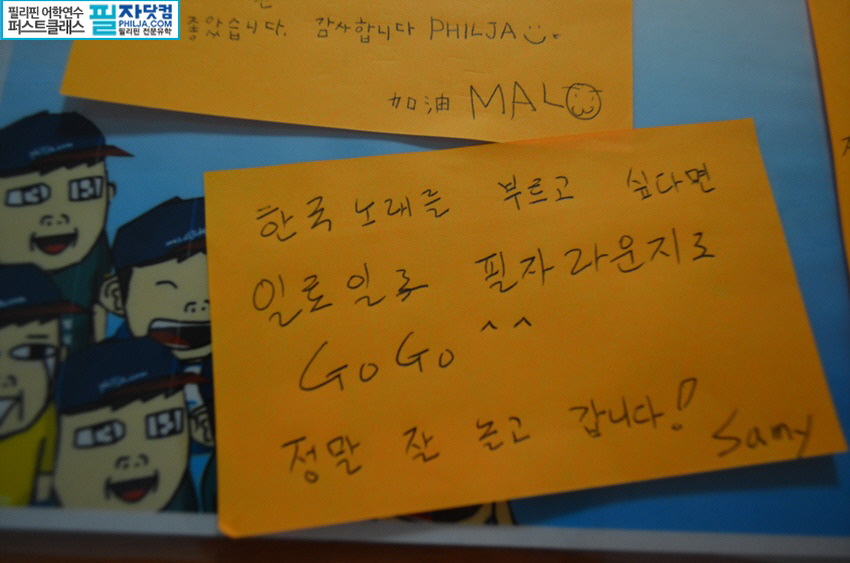 필리핀 어학연수
퍼스트클래스
필자닷컴
PHILJA.COM
필리핀 전문유학
좋았습니다. 감사합니다 PHILJA
加油 MALO
한국 노래를 부르고 싶다면
일로일로 필자라운지로
GoGo ^^
정말 잘 놀고 갑니다!
Samy